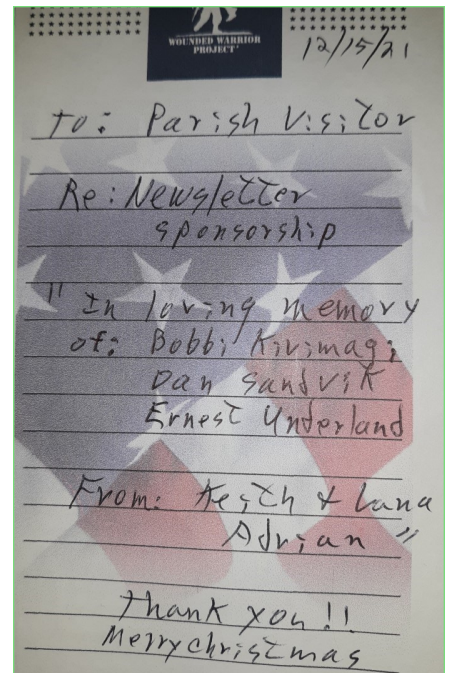 WOUNDED WARRIOR
PROJECT®
12/15/21
To: Parish Visitor
Re: Newsletter
sponsorship
"In loving memory
of: Bobbi Kivimagi
Dan Sandvik
Ernest Underland
From: Keith & Lana
Adrian"
Thank you!!
Merry christmas